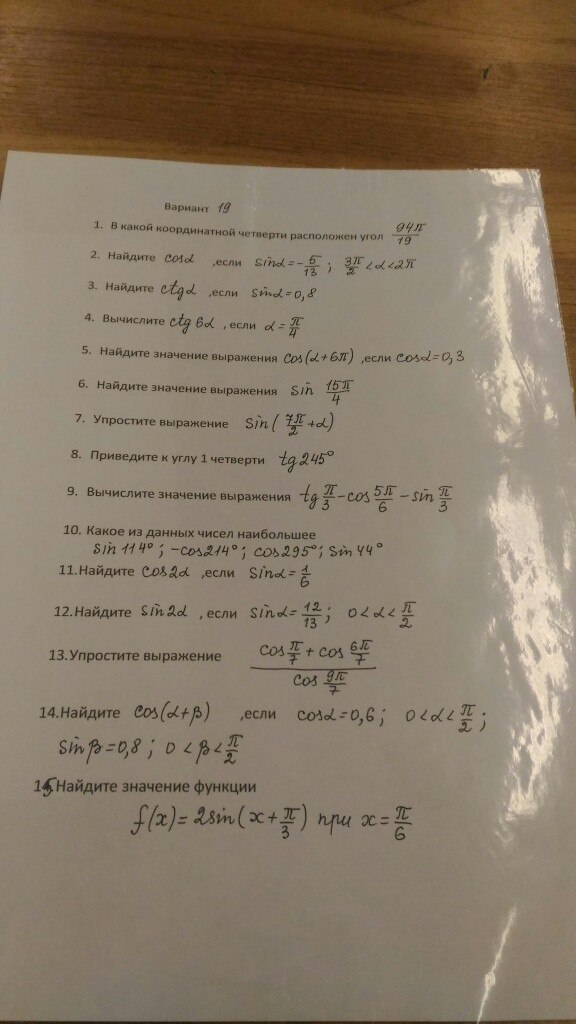 Вариант 19
1. В какой координатной четверти расположен угол 94π/19
2. Найдите cosα ,если sinα=-5/13 ; 3π/2 <α<2π
3. Найдите ctgα ,если sinα=0,8
4. Вычислите ctg6α , если α=π/4
5. Найдите значение выражения cos(α+6π) ,если cosα=0,3
6. Найдите значение выражения sin 15π/4
7. Упростите выражение sin(7π/2+α)
8. Приведите к углу 1 четверти tg245°
9. Вычислите значение выражения tgπ/3-cos5π/6-sinπ/3
10. Какое из данных чисел наибольшее
sin114°; -cos214°; cos295°; sin44°
11.Найдите cos2α ,если sinα=1/6
12.Найдите sin2α , если sinα=12/13; 0<α<π/2
13.Упростите выражение (cosπ/7+cos6π/7)/(cos9π/7)
14.Найдите cos(α+β) ,если cosα=0,6; 0<α<π/2;
sinβ=0,8; 0<β<π/2
15.Найдите значение функции
f(x)=2sin(x+π/3) при x=π/6